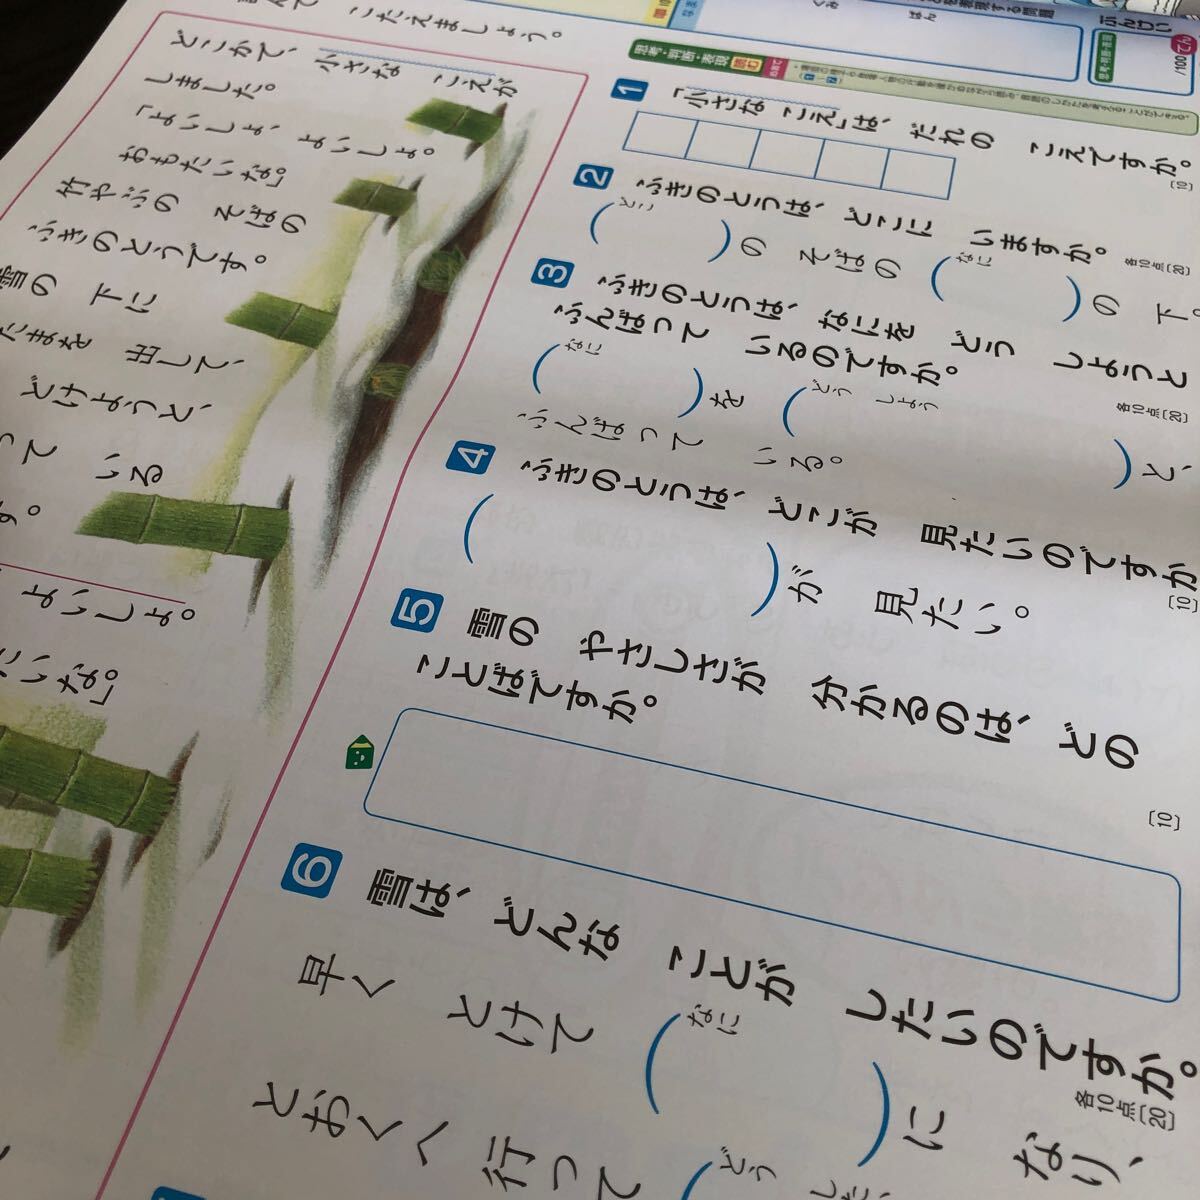 こたえましょう。
どこかで、小さな こえが
しました。
「よいしょ、よいしょ。
おもたいな。」
竹やぶの そばの
ふきのとうです。
雪の 下に
出して、
どけようと、
いる
よいしょ。
ぶんせい
/100てん
思考・判断・表現 読む
1 「小さな こえ」は、だれの こえですか。
〔10〕
2 ふきのとうは、どこに いますか。
各10点〔20〕
（どこ ）の そばの（なに ）の 下。
3 ふきのとうは、なにを どう しようと
ふんばって いるのですか。
各10点〔20〕
（なに ）を（どう しよう ）と、
ふんばって いる。
4 ふきのとうは、どこが 見たいのですか
〔10〕
（ ）が 見たい。
5 雪の やさしさが 分かるのは、どの
ことばですか。
〔10〕
6 雪は、どんな ことが したいのですか。
各10点〔20〕
早く とけて（なに ）に なり、
とおくへ 行って（どう した